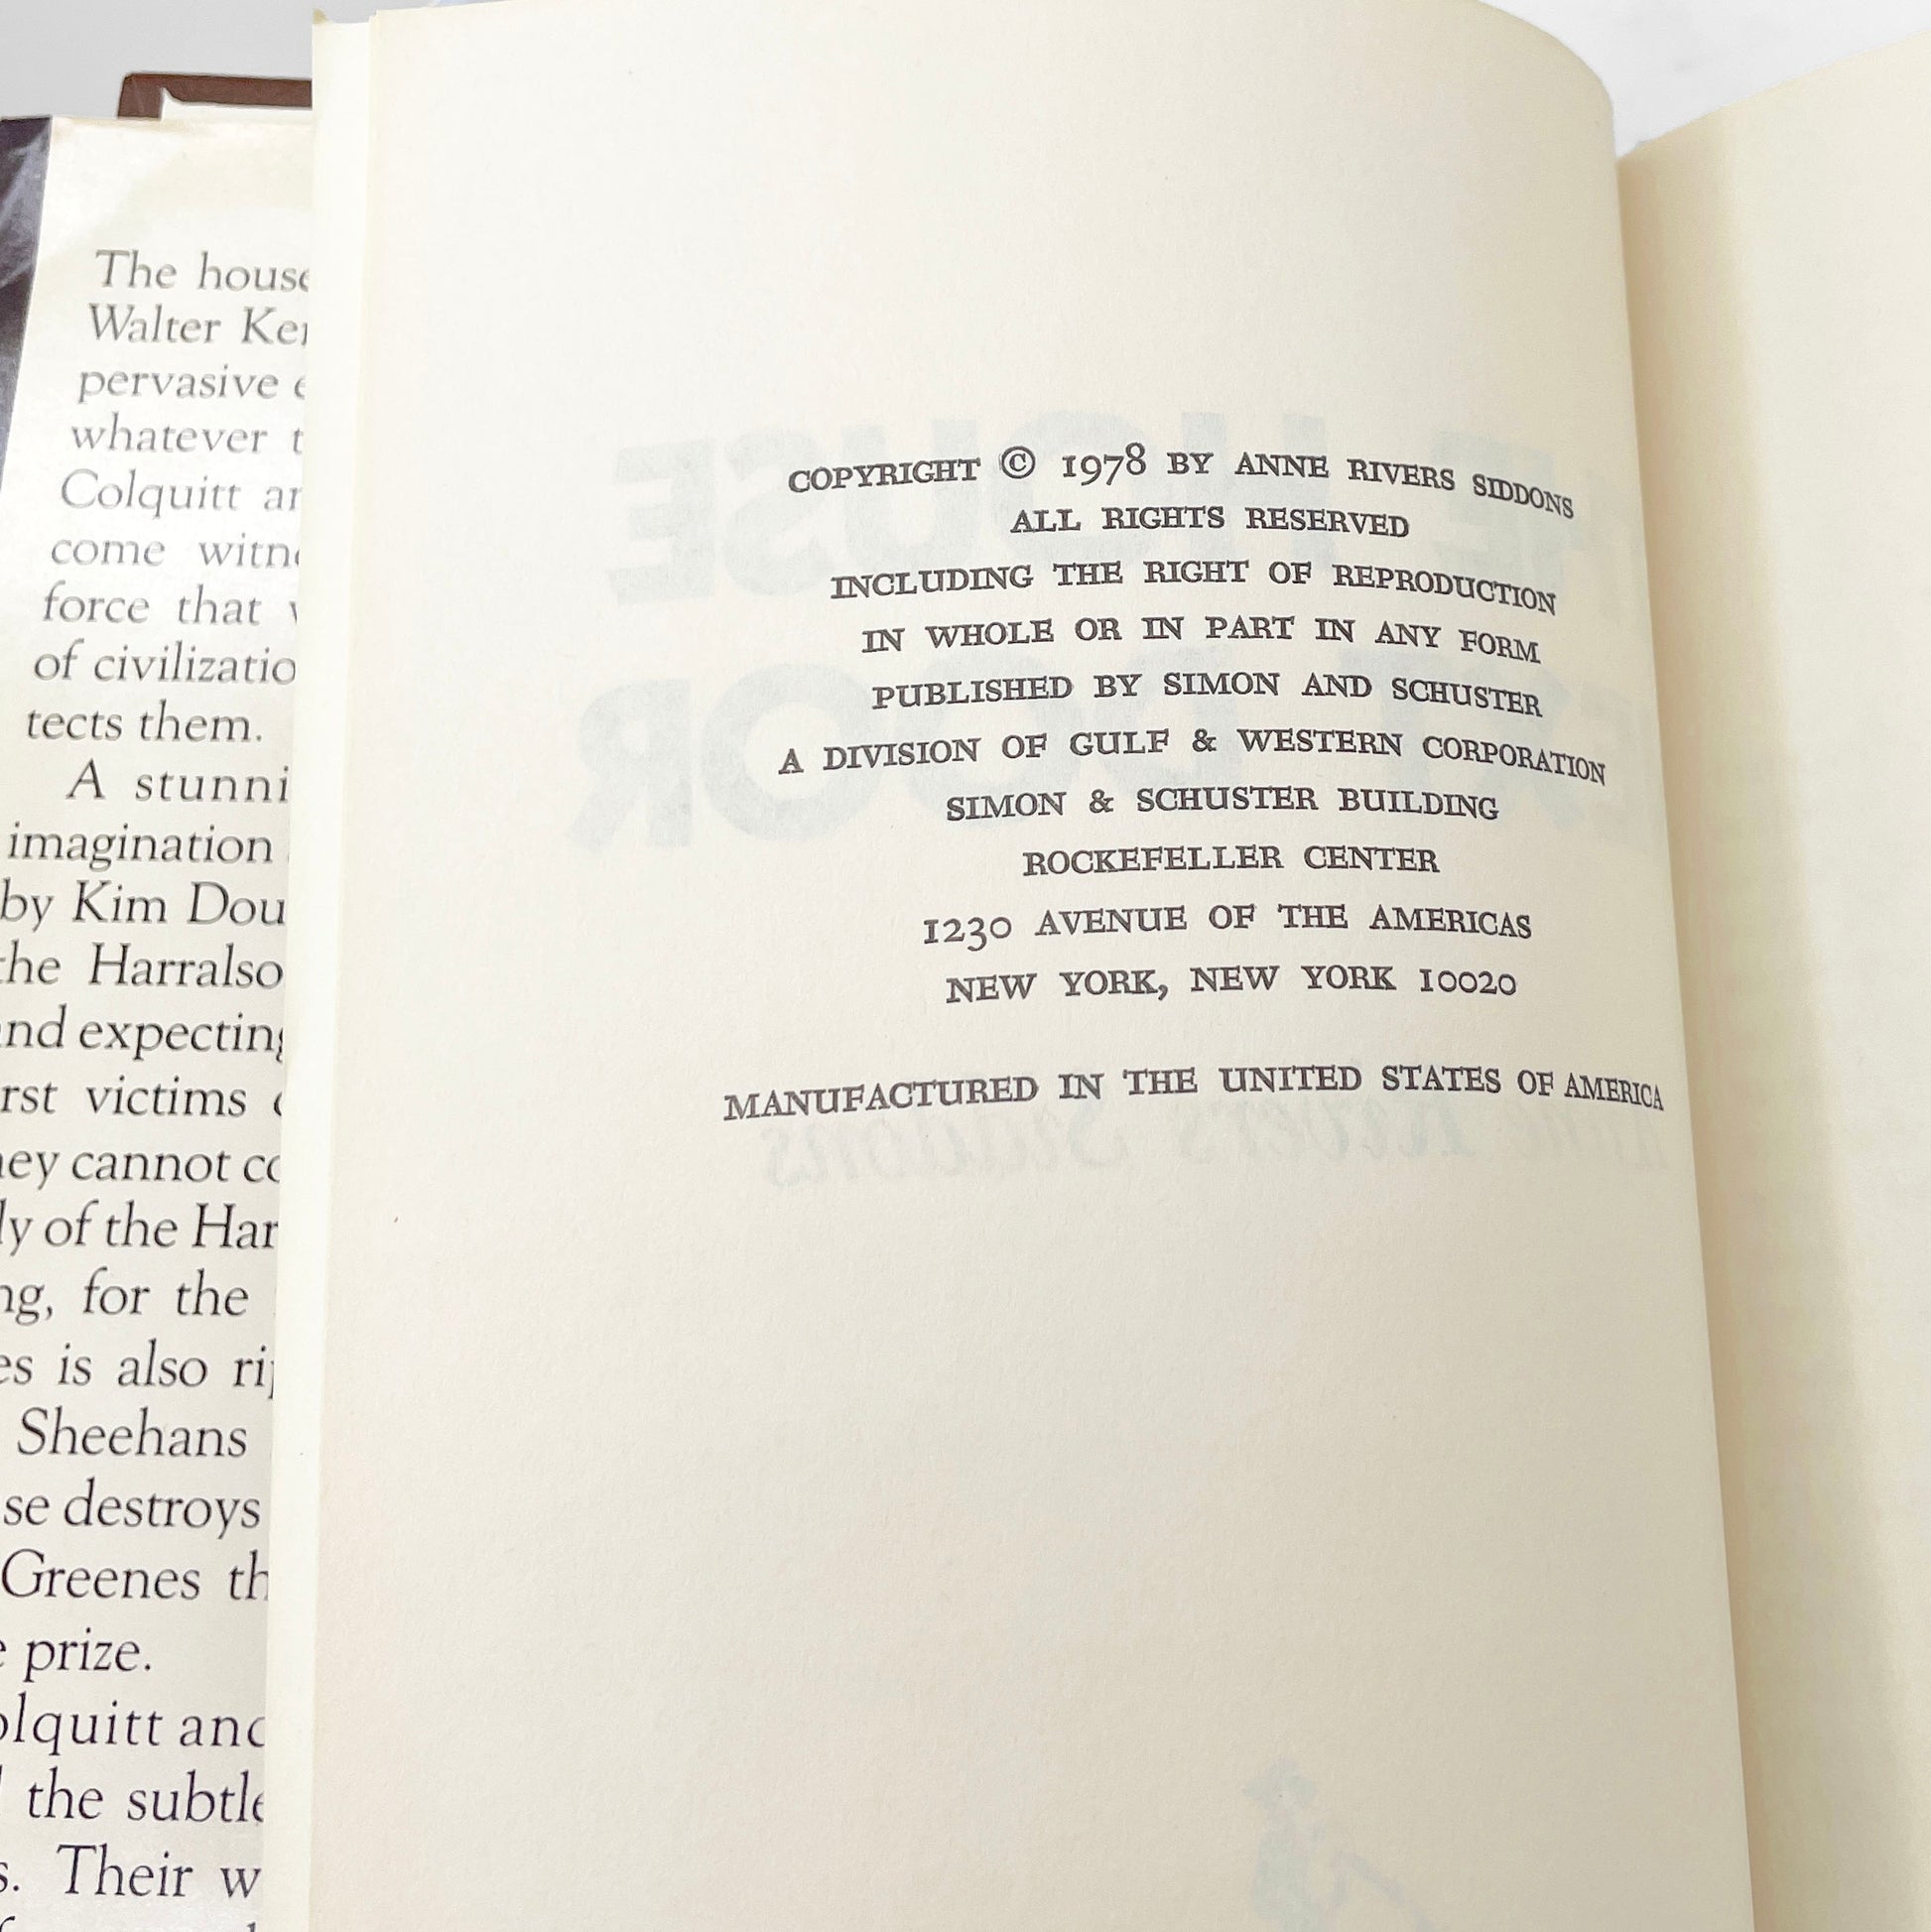 The house
Walter
pervasive
whatever
Colquitt
come
force that
of civilizatio
tects them.
A stunni
imagination
by Kim Dou
the Harralso
and expecting
rst victims
ey cannot
ly of the Har
ng, for the
es is also
Sheehans
se destroys
Greenes th
e prize.
olquitt and
the subtle
s. Their w
COPYRIGHT © 1978 BY ANNE RIVERS SIDDONS
ALL RIGHTS RESERVED
INCLUDING THE RIGHT OF REPRODUCTION
IN WHOLE OR IN PART IN ANY FORM
PUBLISHED BY SIMON AND SCHUSTER
A DIVISION OF GULF & WESTERN CORPORATION
SIMON & SCHUSTER BUILDING
ROCKEFELLER CENTER
1230 AVENUE OF THE AMERICAS
NEW YORK, NEW YORK 10020
MANUFACTURED IN THE UNITED STATES OF AMERICA